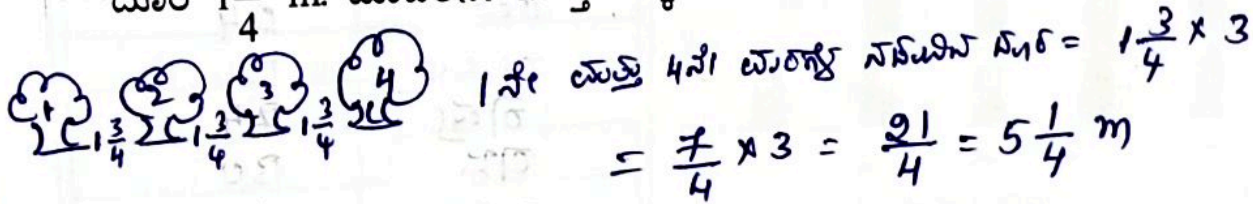 ದೂರ 1 3/4 m.
1 1 3/4 2 1 3/4 3 1 3/4 4
1ನೇ ಮತ್ತು 4ನೇ ಮರಗಳ ನಡುವಿನ ದೂರ = 1 3/4 × 3
= 7/4 × 3 = 21/4 = 5 1/4 m